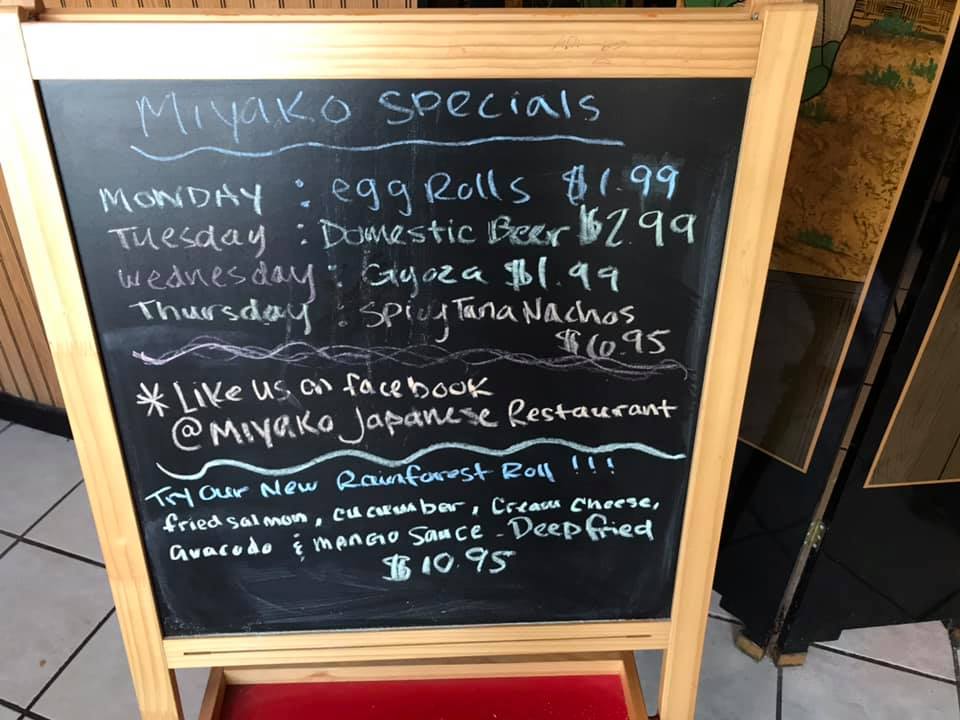 Miyako Specials
MONDAY : egg Rolls $1.99
Tuesday : Domestic Beer $2.99
Wednesday : Gyoza $1.99
Thursday : Spicy Tuna Nachos
$6.95
* Like us on facebook
@Miyako Japanese Restaurant
Try Our New Rainforest Roll !!!
fried salmon, cucumber, Cream Cheese,
avacodo & mango Sauce - Deep fried
$10.95